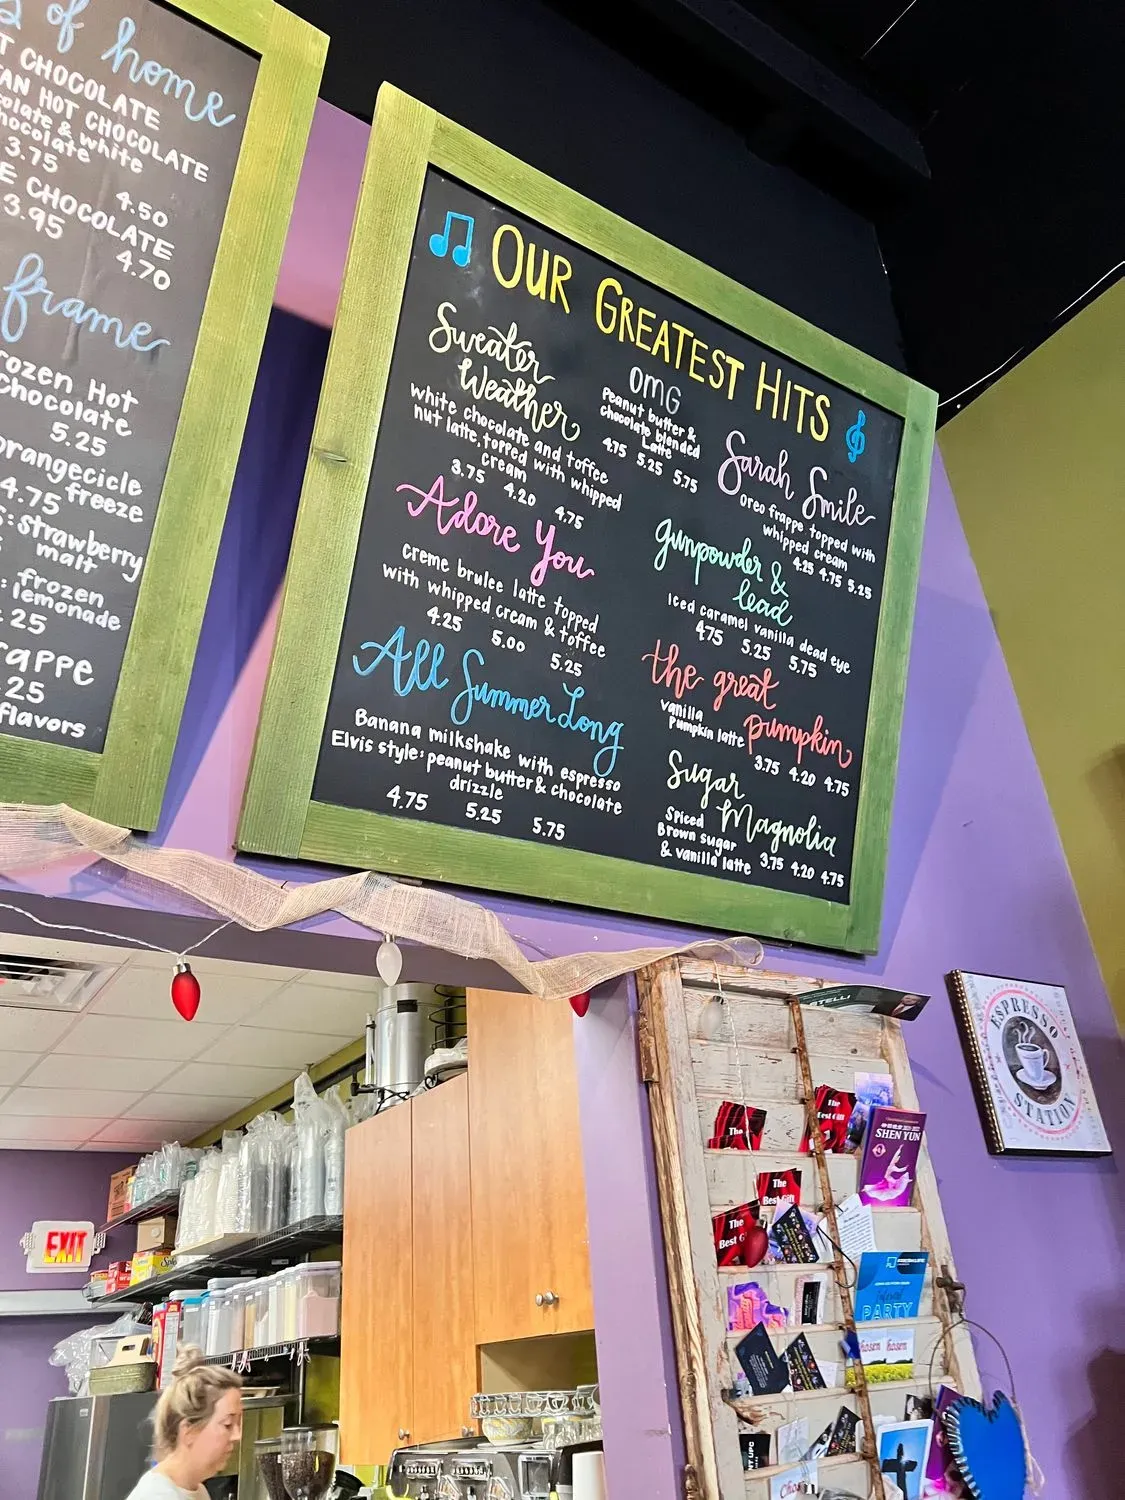 of home
T CHOCOLATE
TAN HOT CHOCOLATE
colate & white
hocolate
3.75 4.50
E CHOCOLATE
3.95 4.70
frame
rozen Hot
chocolate
5.25
orangecicle
freeze
4.75
s: strawberry
malt
: frozen
lemonade
25
rappe
.25
flavors
OUR GREATEST HITS
Sweater
Weather
white chocolate and toffee
nut latte, topped with whipped
cream
3.75 4.20 4.75
Adore You
creme brulee latte topped
with whipped cream & toffee
4.25 5.00 5.25
All Summer Long
Banana milkshake with espresso
Elvis style: peanut butter & chocolate
drizzle
4.75 5.25 5.75
OMG
Peanut butter &
chocolate blended
Latte
4.75 5.25 5.75
Sarah Smile
Oreo frappe topped with
whipped cream
4.25 4.75 5.25
gunpowder &
lead
Iced caramel vanilla dead eye
4.75 5.25 5.75
the great
pumpkin
vanilla
Pumpkin latte
3.75 4.20 4.75
Sugar
Magnolia
Spiced
Brown sugar
& vanilla latte
3.75 4.20 4.75
ESPRESSO
STATION
EXIT
The
The
Best Gift
SHEN YUN
The
Best Gift
The
Best G
PARTY